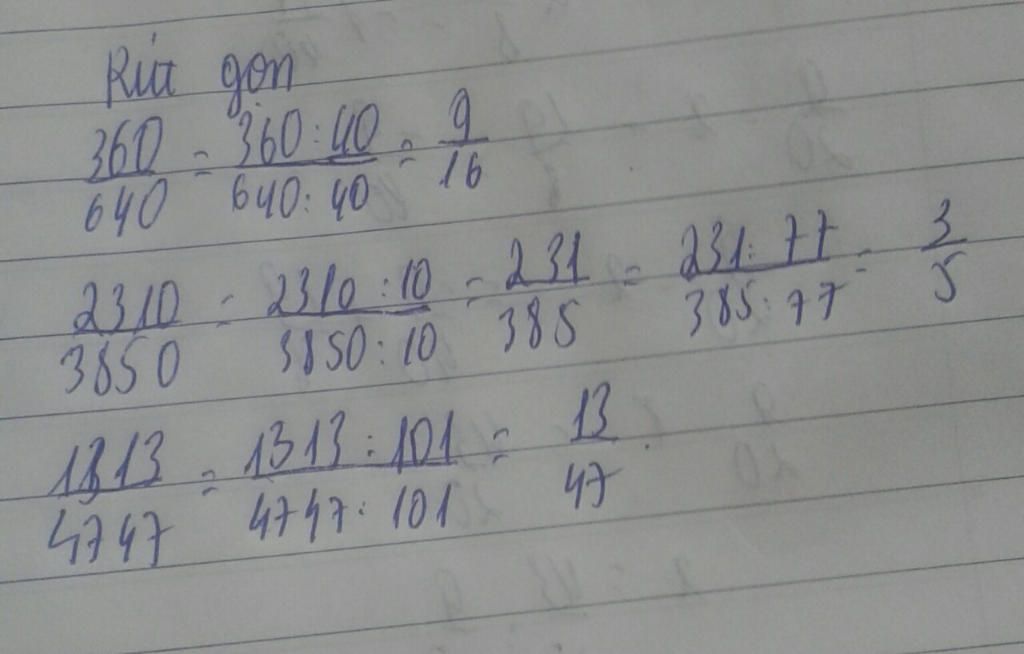 Rút gọn
360/640 = 360:40/640:40 = 9/16
2310/3850 = 2310:10/3850:10 = 231/385 = 231:77/385:77 = 3/5
1313/4747 = 1313:101/4747:101 = 13/47.